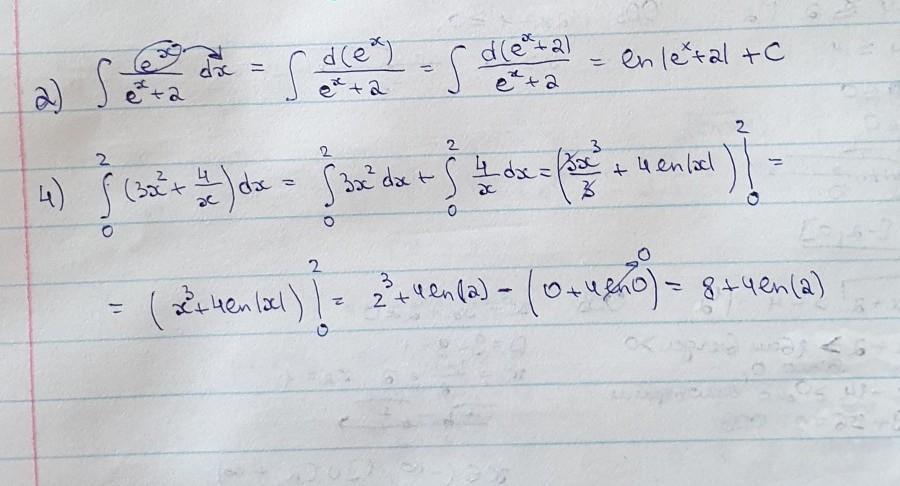 2) ∫ e^x/(e^x+2) dx = ∫ d(e^x)/(e^x+2) = ∫ d(e^x+2)/(e^x+2) = ln|e^x+2| + C
4) ∫₀² (3x² + 4/x) dx = ∫₀² 3x² dx + ∫₀² 4/x dx = (3x³/3 + 4 ln|x|) |₀² =
= (x³ + 4 ln|x|) |₀² = 2³ + 4 ln(2) − (0 + 4 ln 0) → 0 = 8 + 4 ln(2)